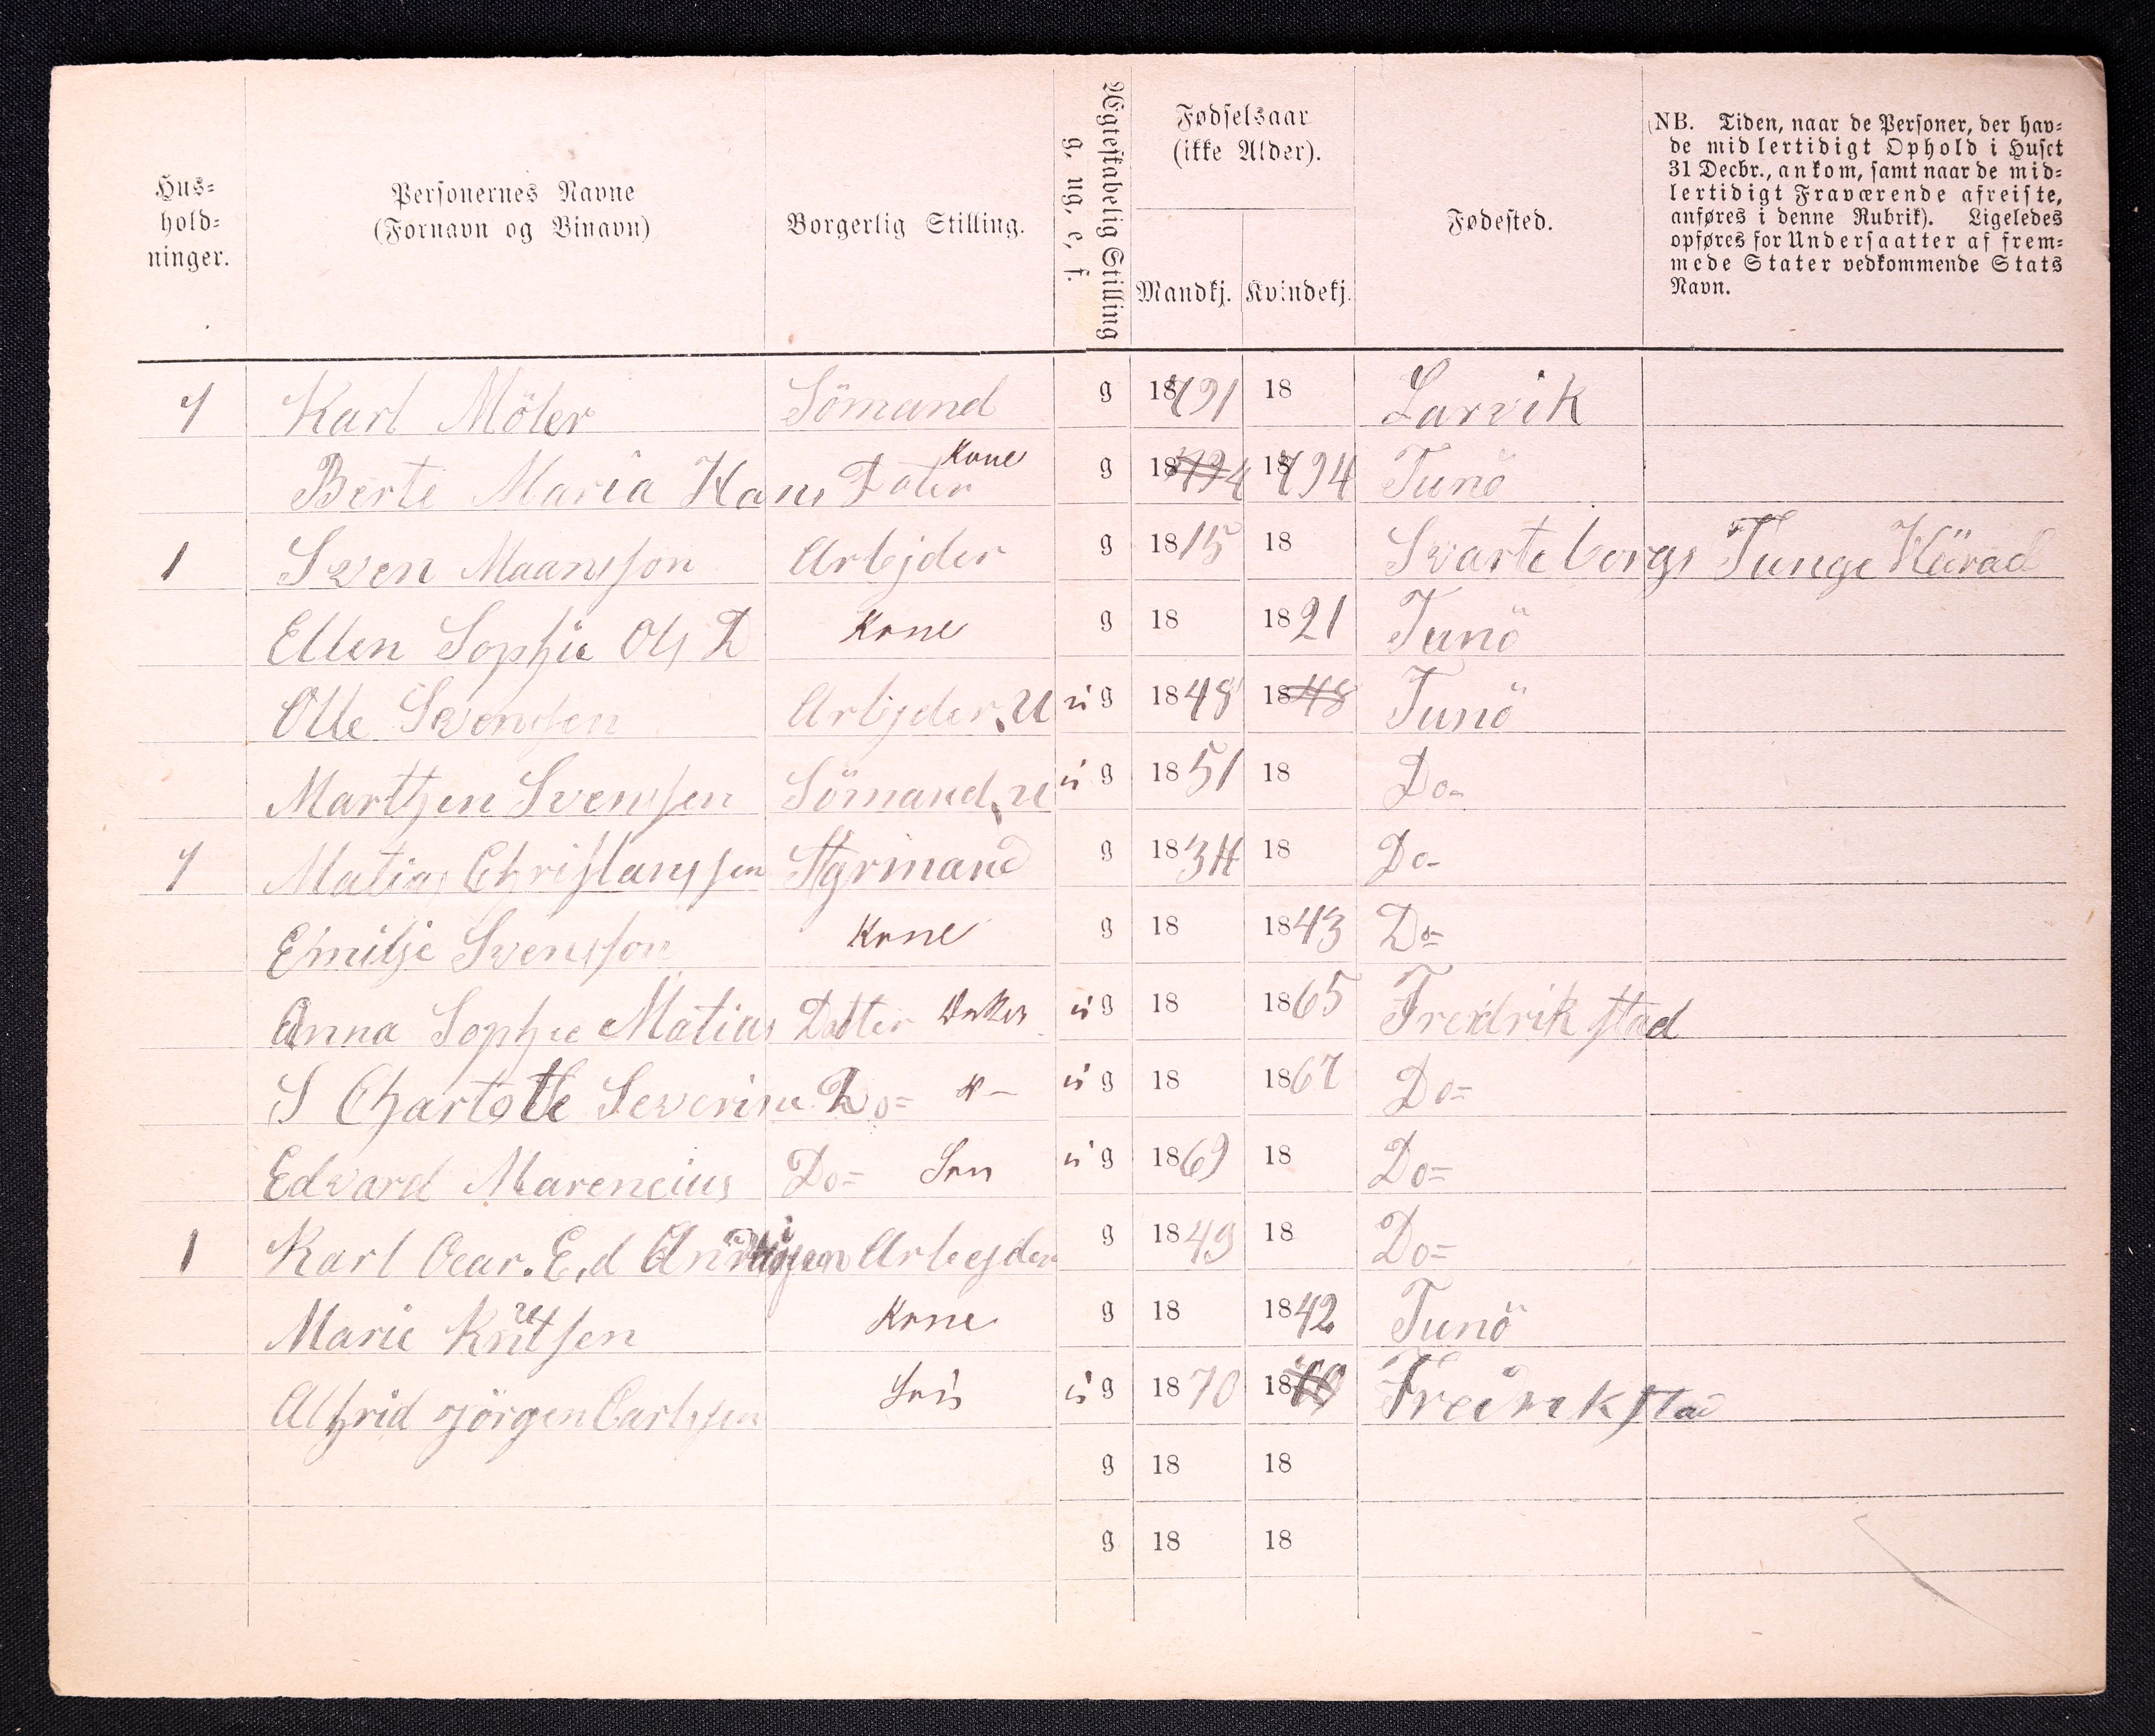 Hus-
hold-
ninger.
Personernes Navne
(Fornavn og Binavn)
Borgerlig Stilling.
Ægteskabelig Stilling
g, ug, e, f.
Fødselsaar
(ikke Alder).
Mandkj. Kvindekj.
Fødested.
NB. Tiden, naar de Personer, der hav-
de midlertidigt Ophold i Huset
31 Decbr., ankom, samt naar de mid-
lertidigt Fraværende afreiste,
anføres i denne Rubrik). Ligeledes
opføres for Undersaatter af frem-
mede Stater vedkommende Stats
Navn.
1 Karl Möler Sömand g 1791 18 Larvik
Berte Maria Hans Doter Kone g 1794 1794 Tunö
1 Sven Maansson Arbejder g 1815 18 Svarteborgs Tunge Härad
Ellen Sophie Ols D Kone g 18 1821 Tunö
Olle Svensen Arbejder, U ug 1848 1848 Tunö
Marthen Svensen Sömand, u ug 1851 18 Do-
1 Matias Christianssen Styrmand g 1834 18 Do-
Emilje Svensson Kone g 18 1843 Do=
Anna Sophie Matias Datter Datter ug 18 1865 Fredrikstad
S Chartotte Severine Do= "- ug 18 1867 Do=
Edvard Marencius Do= Søn ug 1869 18 Do=
1 Karl Ocar. E.d Arbejder g 1849 18 Do=
Marie Knutsen Kone g 18 1842 Tunö
Alfrid Jörgen Carlssen Søn ug 1870 18 Fredrikstad
g 18 18
g 18 18